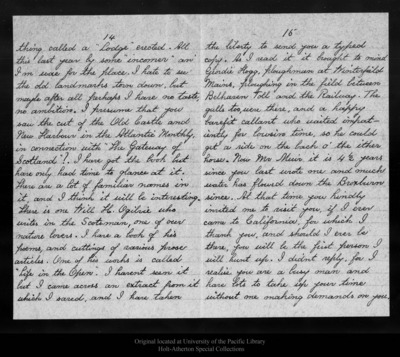 14
thing called a "Lodge erected. All
this last year by some "incomer" an
I'm sure for the place. I hate to see
the old landmarks torn down, but
maybe after all perhaps I have no taste,
no ambition. I presume that you
saw the cut of the Old Castle and
New Harbour in the Atlantic Monthly,
in connection with "The Gateway of
Scotland"!. I have got the book but
have only had time to glance at it.
There are a lot of familiar names in
it, and I think it will be interesting.
There is one Will H. Ogilvie who
writes in the Scotsman, one of our
nature lovers. I have a book of his
poems, and cuttings of various prose
articles. One of his works is called
"Life in the Open". I havent seen it
but I came across an extract from it
which I saved, and I have taken
15
the liberty to send you a typed
copy. As I read it it brought to mind
Geordie Hogg, Ploughman at Winterfield
Mains, ploughing in the field between
Belhaven Toll and the Railway. The
gulls too, were there, and a happy
barefit callant who waited impat-
iently for lousins time, so he could
get a ride on the back o' the ither
horse. Now Mr Muir it is 4½ years
since you last wrote one and much
water has flowed down the Broxburn
since. At that time you kindly
invited me to visit you, if I ever
came to California, for which I
thank you, and should I ever be
there, you will be the first person I
will hunt up. I didnt reply, for I
realise you are a busy man and
have lots to take up your time
without me making demands on you,
Original located at University of the Pacific Library
Holt-Atherton Special Collections